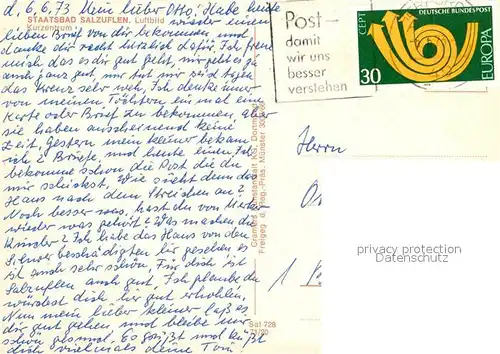 d. 6.6.73 Mein lieber Otto, Habe heute
STAATSBAD SALZUFLEN. Luftbild
Kurzentrum
wieder einen
lieben Brief von dir bekommen, und
danke dir recht herzlich dafür. Ich freue
mich das es dir gut geht, mir geht es
auch ganz gut, nur tut mir seid Tagen
das Kreuz sehr weh. Ich denke immer
von meinen Töchtern einmal eine
Karte oder Brief zu bekommen, aber
sie haben anscheinend keine
Zeit. Gestern mein kleiner bekam
ich 2 Briefe, und heute einen. Ich
bekomme schon die Post die du
mir schickst. Wie sieht denn das
Haus nach dem Streichen aus?
Noch besser was, hast du von
wieder was gehört? Was machen die
Kinder? Ich habe das Haus von den
gesehen es
ist auch sehr schön. Für dich ist
Salzuflen auch gut. Ich glaube du
würdest dich hier gut erholen.
Nun mein lieber kleiner laß es
dir gut gehen und bleibe mir
schön gesund. Es grüßt und küßt
dich vielmals deine Toni
Cramers Kunstanstalt KG, Dortmund
Freigeg. d. Reg.-Präs. Münster
Sal 728
Post -
damit
wir uns
besser
verstehen
CEPT
DEUTSCHE BUNDESPOST
30
EUROPA
Herrn
privacy protection
Datenschutz